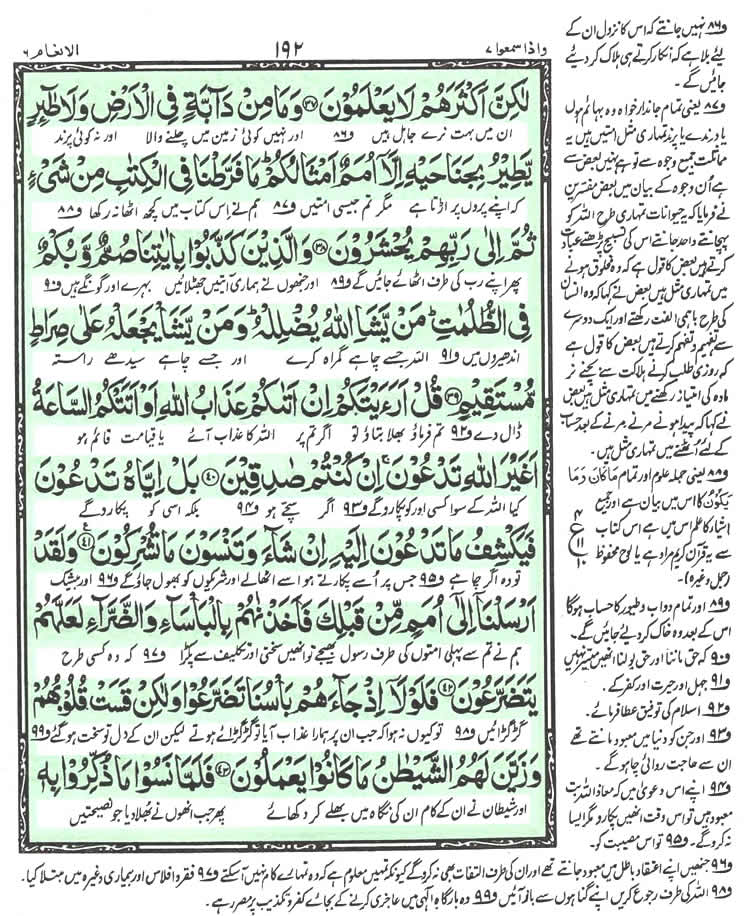 واذا سمعوا ۷
۱۹۲
الانعام ۶
لٰكِنَّ اَكْثَرَهُمْ لَا يَعْلَمُوْنَ ﴿۳۷﴾ وَمَا مِنْ دَآبَّةٍ فِی الْاَرْضِ وَلَا طٰٓئِرٍ
ان میں بہت نرے جاہل ہیں ف۸۶ اور نہیں کوئی زمین میں چلنے والا اور نہ کوئی پرند
يَّطِيْرُ بِجَنَاحَيْهِ اِلَّاۤ اُمَمٌ اَمْثَالُكُمْ ؕ مَا فَرَّطْنَا فِی الْكِتٰبِ مِنْ شَیْءٍ
کہ اپنے پروں پر اڑتا ہے مگر تم جیسی امتیں ف۸۷ ہم نے اس کتاب میں کچھ اٹھا نہ رکھا ف۸۸
ثُمَّ اِلٰی رَبِّهِمْ يُحْشَرُوْنَ ﴿۳۸﴾ وَالَّذِيْنَ كَذَّبُوْا بِاٰيٰتِنَا صُمٌّ وَّبُكْمٌ
پھر اپنے رب کی طرف اٹھائے جائیں گے ف۸۹ اور جنھوں نے ہماری آیتیں جھٹلائیں بہرے اور گونگے ہیں ف۹۰
فِی الظُّلُمٰتِ ؕ مَنْ يَّشَاِ اللّٰهُ يُضْلِلْهُ ؕ وَمَنْ يَّشَاْ يَجْعَلْهُ عَلٰی صِرَاطٍ
اندھیروں میں ف۹۱ اللہ جسے چاہے گمراہ کرے اور جسے چاہے سیدھے راستہ
مُّسْتَقِيْمٍ ﴿۳۹﴾ قُلْ اَرَءَيْتَكُمْ اِنْ اَتٰىكُمْ عَذَابُ اللّٰهِ اَوْ اَتَتْكُمُ السَّاعَةُ
ڈال دے ف۹۲ تم فرماؤ بھلا بتاؤ تو اگر تم پر اللہ کا عذاب آئے یا قیامت قائم ہو
اَغَيْرَ اللّٰهِ تَدْعُوْنَ ۚ اِنْ كُنْتُمْ صٰدِقِيْنَ ﴿۴۰﴾ بَلْ اِيَّاهُ تَدْعُوْنَ
کیا اللہ کے سوا کسی اور کو پکارو گے ف۹۳ اگر سچے ہو ف۹۴ بلکہ اسی کو پکارو گے
فَيَكْشِفُ مَا تَدْعُوْنَ اِلَيْهِ اِنْ شَآءَ وَتَنْسَوْنَ مَا تُشْرِكُوْنَ ﴿۴۱﴾ وَلَقَدْ
تو وہ اگر چاہے ف۹۵ جس پر اُسے پکارتے ہو اسے اٹھالے اور شریکوں کو بھول جاؤ گے ف۹۶ اور بیشک
اَرْسَلْنَاۤ اِلٰۤی اُمَمٍ مِّنْ قَبْلِكَ فَاَخَذْنٰهُمْ بِالْبَاْسَآءِ وَالضَّرَّآءِ لَعَلَّهُمْ
ہم نے تم سے پہلی امتوں کی طرف رسول بھیجے تو انھیں سختی اور تکلیف سے پکڑا ف۹۷ کہ وہ کسی طرح
يَتَضَرَّعُوْنَ ﴿۴۲﴾ فَلَوْلَاۤ اِذْ جَآءَهُمْ بَاْسُنَا تَضَرَّعُوْا وَلٰكِنْ قَسَتْ قُلُوْبُهُمْ
گڑگڑائیں ف۹۸ تو کیوں نہ ہوا کہ جب ان پر ہمارا عذاب آیا تو گڑگڑائے ہوتے لیکن ان کے دل تو سخت ہوگئے ف۹۹
وَزَيَّنَ لَهُمُ الشَّيْطٰنُ مَا كَانُوْا يَعْمَلُوْنَ ﴿۴۳﴾ فَلَمَّا نَسُوْا مَا ذُكِّرُوْا بِهٖ
اور شیطان نے ان کے کام ان کی نگاہ میں بھلے کر دکھائے پھر جب انھوں نے بھلا دیا جو نصیحتیں
ف۸۶ نہیں جانتے کہ اس کا نزول ان کے
لئے بلا ہے کہ انکار کرتے ہی ہلاک کر دیئے
جائیں گے۔
ف۸۷ یعنی تمام جاندار خواہ وہ بہائم ہوں
یا درندے یا پرند تمہاری مثل امتیں ہیں یہ
مماثلت جمیع وجوہ سے تو ہے نہیں بعض سے
ہے اُن وجوہ کے بیان میں بعض مفسرین
نے فرمایا کہ یہ حیوانات تمہاری طرح اللہ کو
پہچانتے واحد جانتے اس کی تسبیح پڑھتے عبادت
کرتے ہیں بعض کا قول ہے کہ وہ مخلوق ہونے
میں تمہاری مثل ہیں بعض نے کہا کہ وہ انسان
کی طرح باہمی الفت رکھتے اور ایک دوسرے
سے تفہیم و تفہم کرتے ہیں بعض کا قول ہے
کہ روزی طلب کرنے ہلاکت سے بچنے نر
مادہ کی امتیاز رکھنے میں تمہاری مثل ہیں بعض
نے کہا کہ پیدا ہونے مرنے مرنے کے بعد حساب
کے لئے اُٹھنے میں تمہاری مثل ہیں۔
ف۸۸ یعنی جملہ علوم اور تمام مَا کَانَ وَمَا
یَکُوْنُ کا اس میں بیان ہے اور جمیع
اشیاء کا علم اس میں ہے اس کتاب
سے یہ قرآن کریم مراد ہے یا لوح محفوظ
(جمل وغیرہ)۔
ع ۴ ۱۱ ۱۰
ف۸۹ اور تمام دواب و طیور کا حساب ہوگا
اس کے بعد وہ خاک کر دیئے جائیں گے۔
ف۹۰ کہ حق ماننا اور حق بولنا انھیں میسر نہیں
ف۹۱ جہل اور حیرت اور کفر کے۔
ف۹۲ اسلام کی توفیق عطا فرمائے۔
ف۹۳ اور جن کو دنیا میں معبود مانتے تھے
ان سے حاجت روائی چاہو گے۔
ف۹۴ اپنے اس دعویٰ میں کہ معاذ اللہ بت
معبود ہیں تو اس وقت انھیں پکارو مگر ایسا
نہ کرو گے۔ ف۹۵ تو اس مصیبت کو۔
ف۹۶ جنھیں اپنے اعتقاد باطل میں معبود جانتے تھے اور ان کی طرف التفات بھی نہ کرو گے کیونکہ تمہیں معلوم ہے کہ وہ تمہارے کام نہیں آسکتے ف۹۷ فقر و افلاس اور بیماری وغیرہ میں مبتلا کیا۔
ف۹۸ اللہ کی طرف رجوع کریں اپنے گناہوں سے باز آئیں ف۹۹ وہ بارگاہ الٰہی میں عاجزی کرنے کے بجائے کفر و تکذیب پر مصر رہے۔